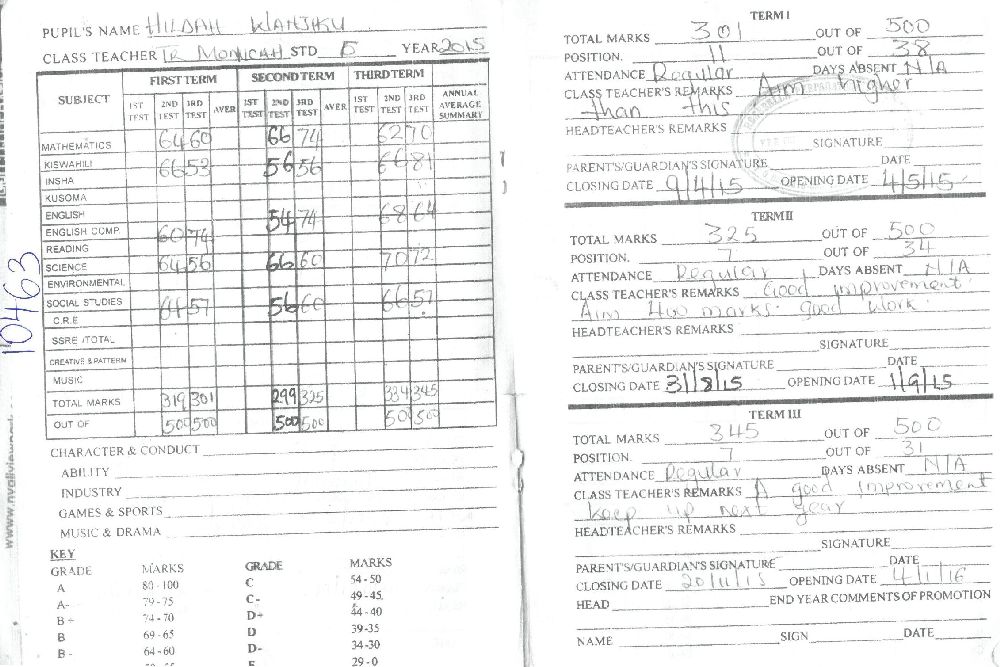 PUPIL'S NAME HILDAH WANJIKU
CLASS TEACHER TR MONICAH STD 5 YEAR 2015
SUBJECT FIRST TERM SECOND TERM THIRD TERM
1ST TEST 2ND TEST 3RD TEST AVER 1ST TEST 2ND TEST 3RD TEST AVER 1ST TEST 2ND TEST 3RD TEST ANNUAL AVERAGE SUMMARY
MATHEMATICS 64 60 66 74 62 70
KISWAHILI 66 53 56 56 66 81
INSHA
KUSOMA
ENGLISH 54 74 68 64
ENGLISH COMP. 60 74
READING
SCIENCE 64 56 66 60 70 72
ENVIRONMENTAL
SOCIAL STUDIES 57 56 60 66 57
C.R.E
SSRE /TOTAL
CREATIVE & PATTERN
MUSIC
TOTAL MARKS 319 301 299 325 334 345
OUT OF 500 500 500 500 500 500
CHARACTER & CONDUCT
ABILITY
INDUSTRY
GAMES & SPORTS
MUSIC & DRAMA
KEY
GRADE MARKS GRADE MARKS
A 80-100 C 54-50
A- 79-75 C- 49-45
B+ 74-70 D+ 44-40
B 69-65 D 39-35
B- 64-60 D- 34-30
E 29-0
10463
TERM I
TOTAL MARKS 301 OUT OF 500
POSITION. 11 OUT OF 38
ATTENDANCE Regular DAYS ABSENT N/A
CLASS TEACHER'S REMARKS Aim higher
than this
HEADTEACHER'S REMARKS
SIGNATURE
PARENT'S/GUARDIAN'S SIGNATURE DATE
CLOSING DATE 9/4/15 OPENING DATE 4/5/15
TERM II
TOTAL MARKS 325 OUT OF 500
POSITION. 7 OUT OF 34
ATTENDANCE Regular DAYS ABSENT N/A
CLASS TEACHER'S REMARKS Good improvement.
Aim 400 marks. good work.
HEADTEACHER'S REMARKS
SIGNATURE
PARENT'S/GUARDIAN'S SIGNATURE DATE
CLOSING DATE 31/8/15 OPENING DATE 1/9/15
TERM III
TOTAL MARKS 345 OUT OF 500
POSITION. 7 OUT OF 31
ATTENDANCE Regular DAYS ABSENT N/A
CLASS TEACHER'S REMARKS A good improvement
keep up next year
HEADTEACHER'S REMARKS
SIGNATURE
PARENT'S/GUARDIAN'S SIGNATURE DATE
CLOSING DATE 20/11/15 OPENING DATE 4/1/16
HEAD END YEAR COMMENTS OF PROMOTION
NAME SIGN DATE